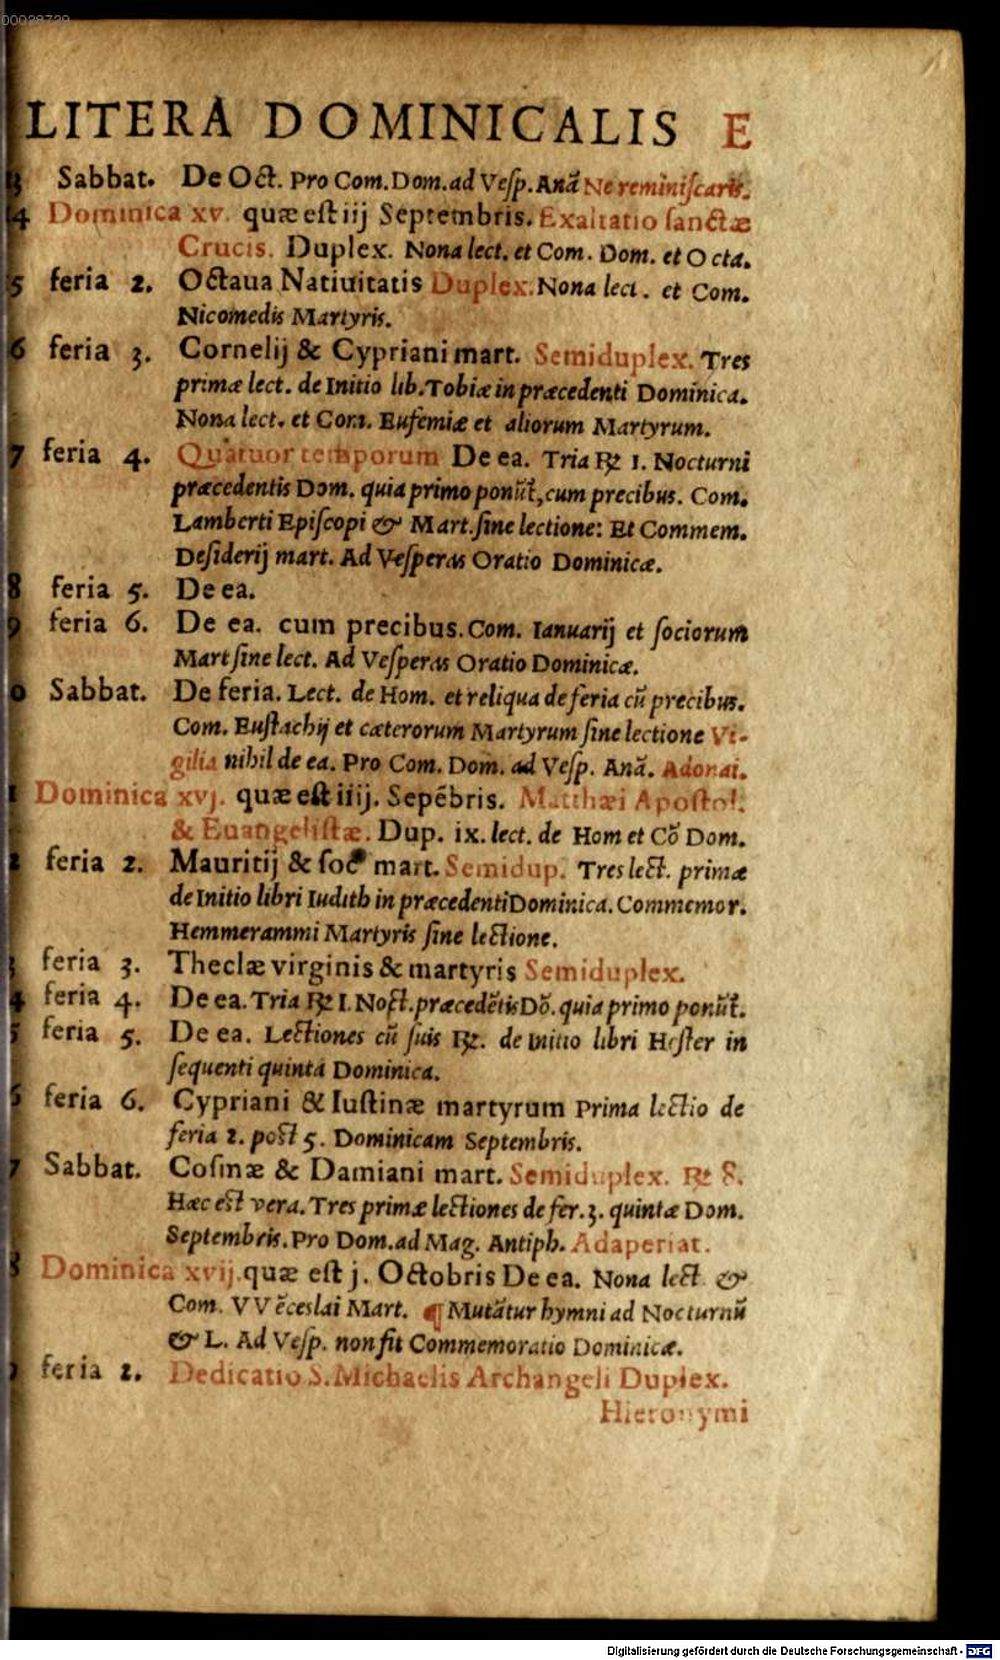 00028729
LITERA DOMINICALIS E
3 Sabbat. De Oct. Pro Com. Dom. ad Vesp. Anã Ne reminiscaris.
14 Dominica xv. quæ est iij Septembris. Exaltatio sanctæ
Crucis. Duplex. Nona lect. et Com. Dom. et Octa.
5 feria 2. Octaua Natiuitatis Duplex. Nona lect. et Com.
Nicomedis Martyris.
6 feria 3. Cornelij & Cypriani mart. Semiduplex. Tres
primæ lect. de Initio lib. Tobiæ in præcedenti Dominica.
Nona lect. et Com. Eufemiæ et aliorum Martyrum.
7 feria 4. Quatuor temporum De ea. Tria ℞ 1. Nocturni
præcedentis Dom. quia primo ponũt, cum precibus. Com.
Lamberti Episcopi & Mart. sine lectione: Et Commem.
Desiderij mart. Ad Vesperas Oratio Dominicæ.
8 feria 5. De ea.
9 feria 6. De ea. cum precibus. Com. Ianuarij et sociorum
Mart sine lect. Ad Vesperas Oratio Dominicæ.
0 Sabbat. De feria. Lect. de Hom. et reliqua de feria cũ precibus.
Com. Eustachij et cæterorum Martyrum sine lectione Vi-
gilia nihil de ea. Pro Com. Dom. ad Vesp. Anã. Adonai.
1 Dominica xvj. quæ est iiij. Sepẽbris. Matthæi Apostol.
& Euangelistæ. Dup. ix. lect. de Hom et Cõ Dom.
2 feria 2. Mauritij & soc mart. Semidup. Tres lect. primæ
de Initio libri Iudith in præcedenti Dominica. Commemor.
Hemmerammi Martyris sine lectione.
3 feria 3. Theclæ virginis & martyris Semiduplex.
4 feria 4. De ea. Tria ℞ I. Noct. præcedẽtis Dõ. quia primo ponũt.
5 feria 5. De ea. Lectiones cũ suis ℞. de initio libri Hester in
sequenti quinta Dominica.
6 feria 6. Cypriani & Iustinæ martyrum Prima lectio de
feria 2. post 5. Dominicam Septembris.
7 Sabbat. Cosmæ & Damiani mart. Semiduplex. ℞ 8.
Hæc est vera. Tres primæ lectiones de fer. 3. quintæ Dom.
Septembris. Pro Dom. ad Mag. Antiph. Adaperiat.
8 Dominica xvij. quæ est j. Octobris De ea. Nona lect &
Com. VVẽceslai Mart. ¶ Mutãtur hymni ad Nocturnũ
& L. Ad Vesp. non fit Commemoratio Dominicæ.
feria 2. Dedicatio S. Michaelis Archangeli Duplex.
Hieronymi
Digitalisierung gefördert durch die Deutsche Forschungsgemeinschaft - DFG